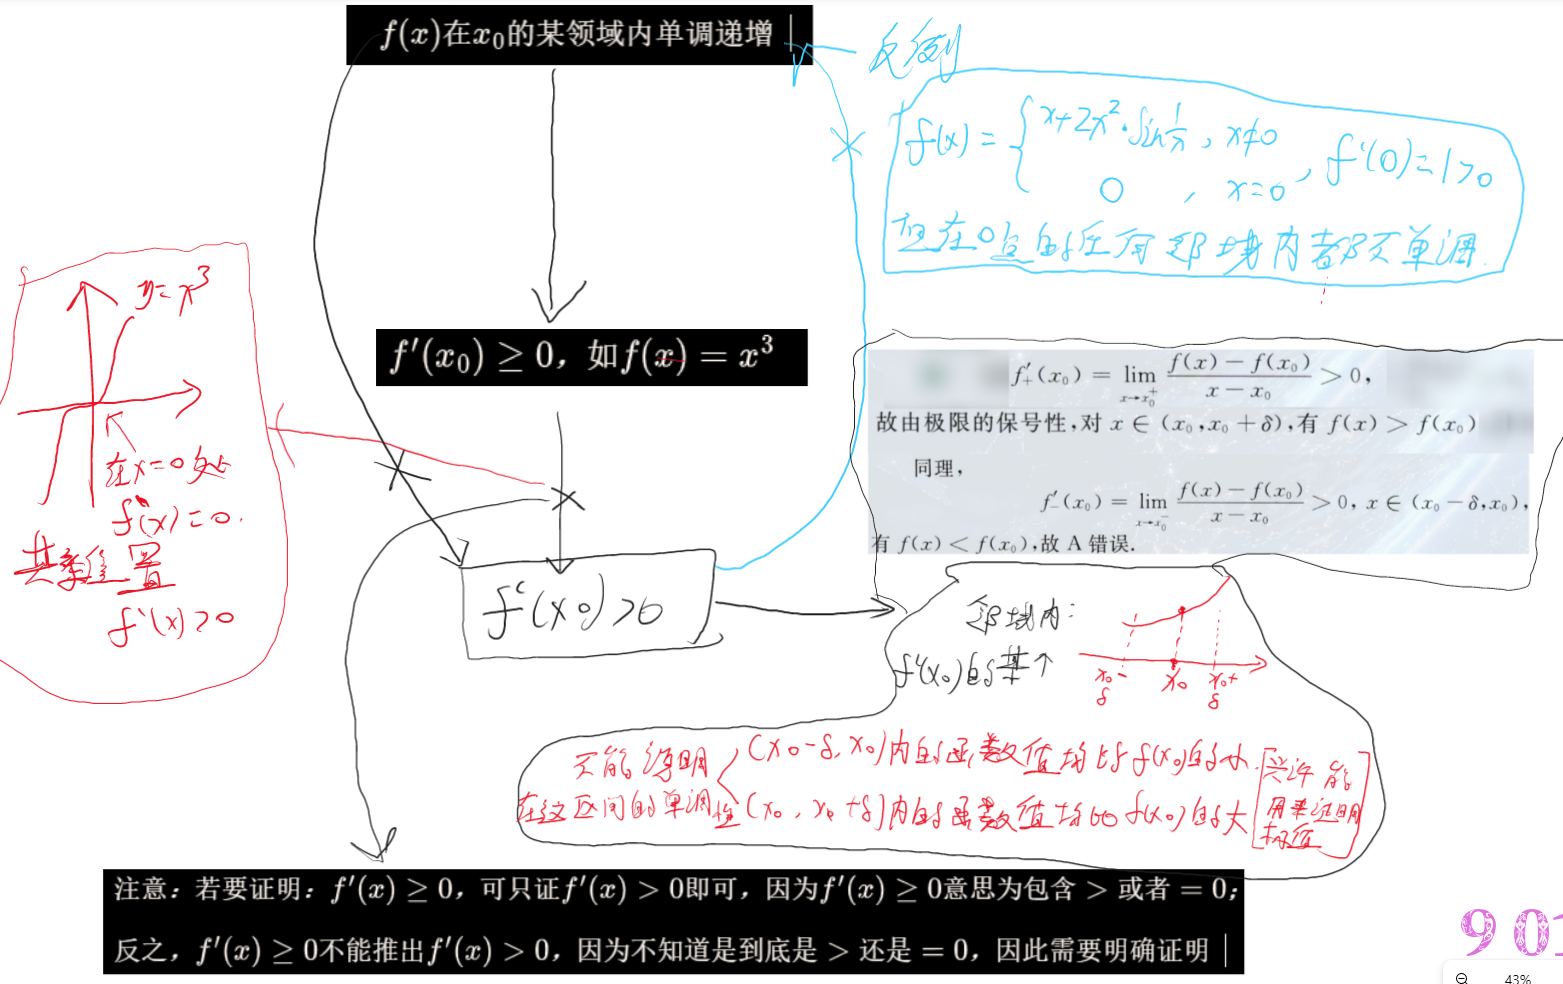 f(x)在x₀的某领域内单调递增
反例
f(x) = { x+2x²·sin 1/x , x≠0
0 , x=0 , f'(0)=1>0
但在0点的任何邻域内都不单调.
y=x³
f'(x₀) ≥ 0，如f(x) = x³
f'₊(x₀) = lim x→x₀⁺ (f(x) − f(x₀))/(x − x₀) > 0,
故由极限的保号性,对 x ∈ (x₀,x₀ + δ),有 f(x) > f(x₀)
同理,
f'₋(x₀) = lim x→x₀⁻ (f(x) − f(x₀))/(x − x₀) > 0, x ∈ (x₀ − δ,x₀),
有 f(x) < f(x₀),故 A 错误.
在x=0处
f'(x)=0.
其余位置
f'(x)>0
f'(x₀)>0
邻域内:
f'(x₀)的某个
x₀-δ
x₀
x₀+δ
不能说明
在这区间的单调性
(x₀-δ, x₀)内的函数值均比f(x₀)的小
(x₀, x₀+δ)内的函数值均比f(x₀)的大
[兴许能
用来证明
极值]
注意：若要证明：f'(x) ≥ 0，可只证f'(x) > 0即可，因为f'(x) ≥ 0意思为包含 > 或者 = 0；
反之，f'(x) ≥ 0不能推出f'(x) > 0，因为不知道是到底是 > 还是 = 0，因此需要明确证明
43%